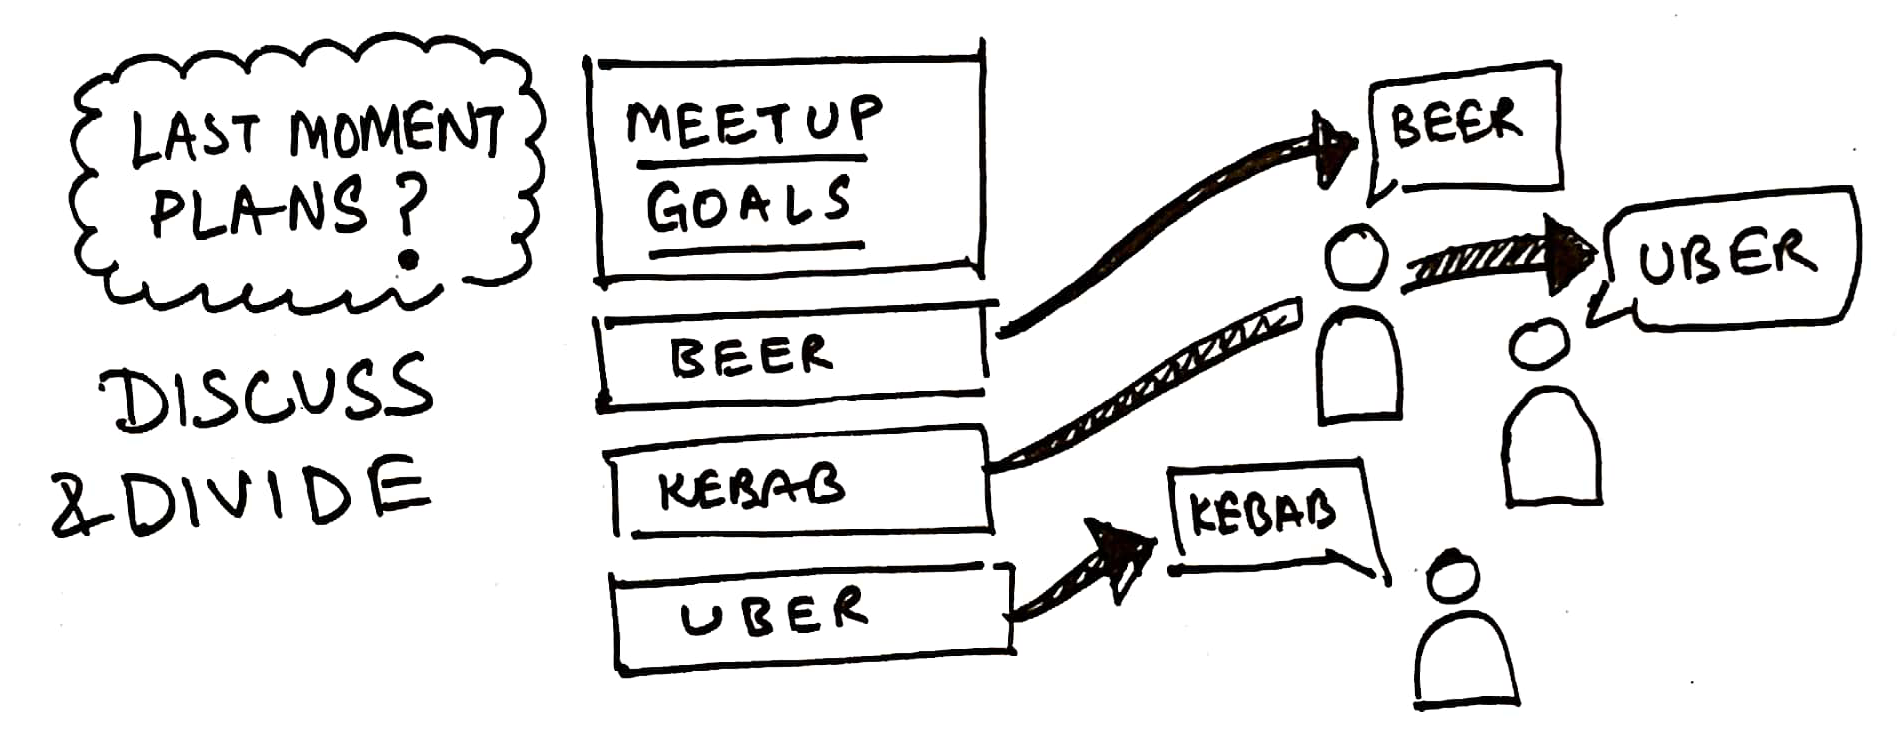 LAST MOMENT
PLANS?
DISCUSS
& DIVIDE
MEETUP
GOALS
BEER
KEBAB
UBER
BEER
UBER
KEBAB